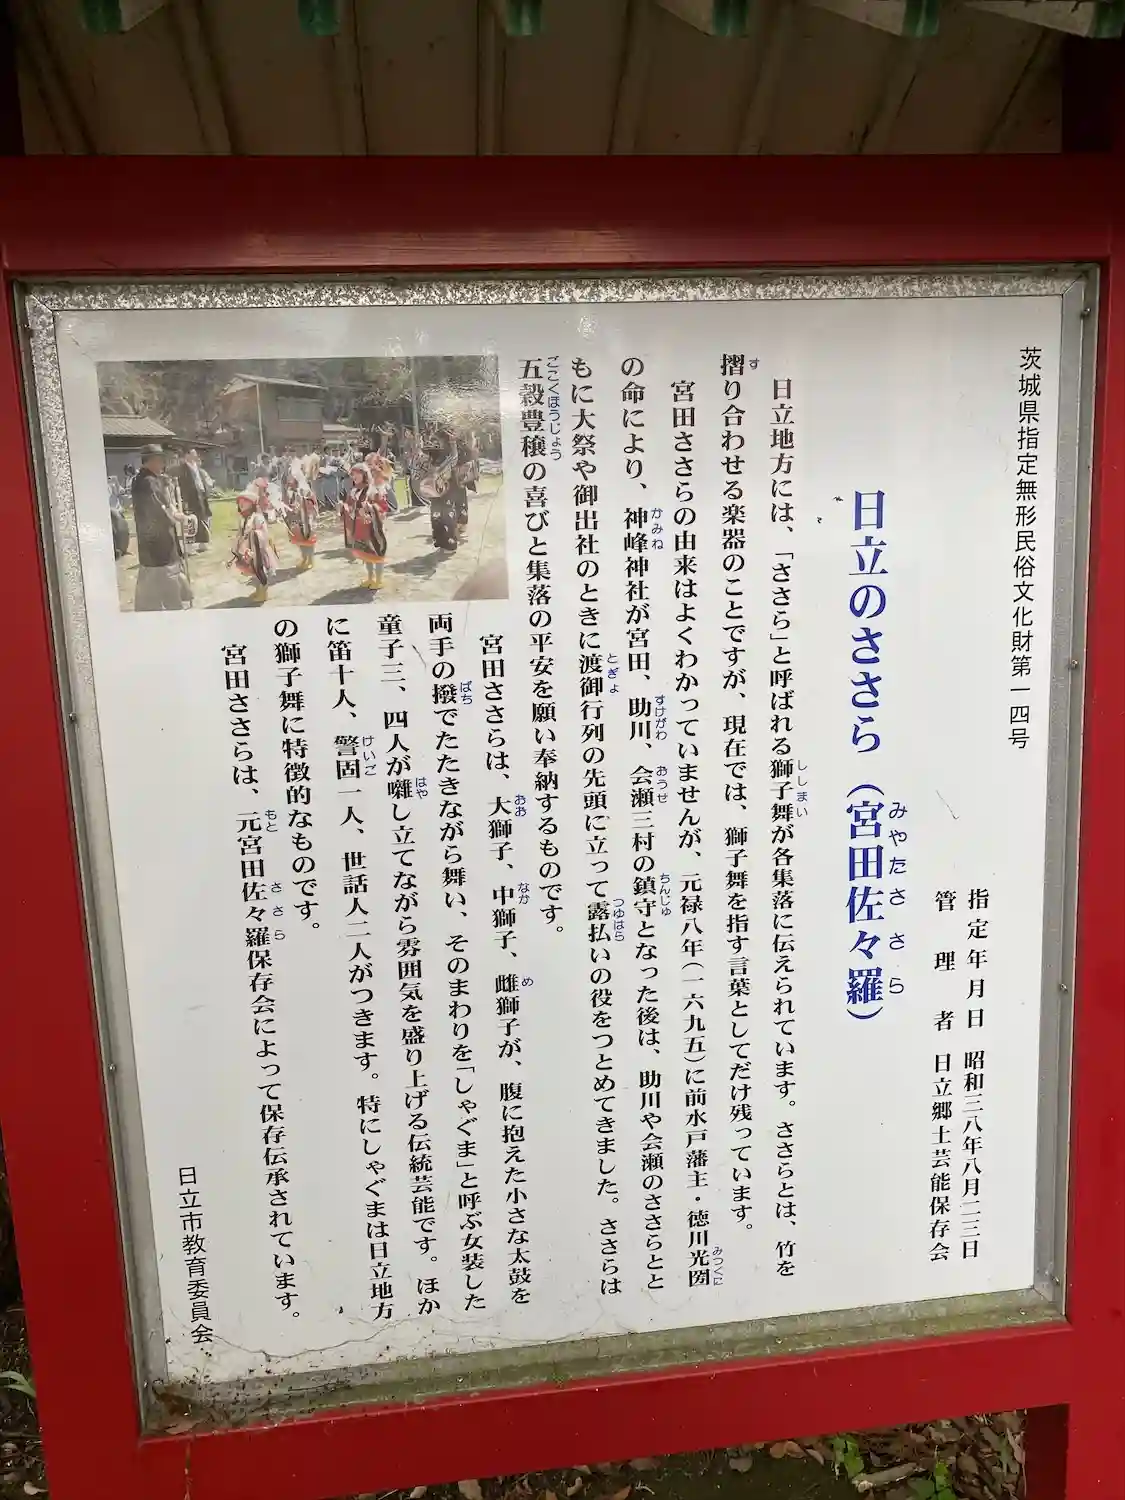 茨城県指定無形民俗文化財第一四号
指定年月日 昭和三八年八月二三日
管理者 日立郷土芸能保存会
日立のささら（宮田佐々羅）
みやたささら
日立地方には、「ささら」と呼ばれる獅子舞が各集落に伝えられています。ささらとは、竹を
ししまい
摺り合わせる楽器のことですが、現在では、獅子舞を指す言葉としてだけ残っています。
す
宮田ささらの由来はよくわかっていませんが、元禄八年（一六九五）に前水戸藩主・徳川光圀
みつくに
の命により、神峰神社が宮田、助川、会瀬三村の鎮守となった後は、助川や会瀬のささらとと
かみね すけがわ おうせ ちんじゅ
もに大祭や御出社のときに渡御行列の先頭に立って露払いの役をつとめてきました。ささらは
とぎょ つゆはら
五穀豊穣の喜びと集落の平安を願い奉納するものです。
ごこくほうじょう
宮田ささらは、大獅子、中獅子、雌獅子が、腹に抱えた小さな太鼓を
おお なか め
両手の撥でたたきながら舞い、そのまわりを「しゃぐま」と呼ぶ女装した
ばち
童子三、四人が囃し立てながら雰囲気を盛り上げる伝統芸能です。ほか
はや
に笛十人、警固一人、世話人二人がつきます。特にしゃぐまは日立地方
けいご
の獅子舞に特徴的なものです。
宮田ささらは、元宮田佐々羅保存会によって保存伝承されています。
もと ささら
日立市教育委員会